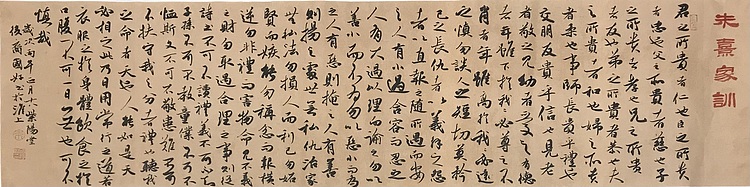 朱熹家訓
君之所貴者仁也臣之所貴
者忠也父之所貴者慈也子
之所貴者孝也兄之所貴
者友也弟之所貴者恭也夫
之所貴者和也婦之所貴
者柔也事師長貴乎禮也
交朋友貴乎信也見老
者敬之見幼者愛之有德
者年雖下於我我必尊之不
肖者年雖高於我我必遠
之慎勿談人之短切莫矜
己之長仇者以義解之怨
者以直報之隨所遇而安
之人有小過含容而忍之
人有大過以理而諭之勿以
善小而不為勿以惡小而為
之人有惡則掩之人有善
則揚之處世無私仇治家
無私法勿損人而利己勿妒
賢而嫉能勿稱忿而報橫
逆勿非禮而害物命見不義
之財勿取遇合理之事則從
詩書不可不讀禮義不可不知
子孫不可不教童僕不可不
恤斯文不可不敬患難不可
不扶守我之分者禮也聽我
之命者天也人能如是天
必相之此乃日用常行之道若
衣服之於身體飲食之於
口腹不可一日無也可不
慎哉
歲次丙午